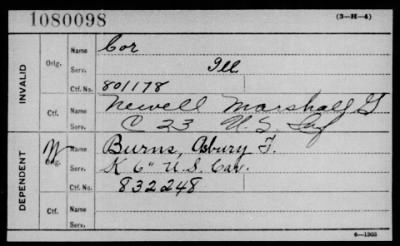 1080098
(3—H—4)
INVALID
Orig.
Name
Cor
Serv.
Ill
Ctf. No.
801178
Ctf.
Name
Newell Marshall G
Serv.
C 23 U.S. Inf
DEPENDENT
W
Orig.
Name
Burns, Asbury F.
Serv.
K 6" U.S. Cav.
Ctf. No.
832248
Ctf.
Name
Serv.
6—1303